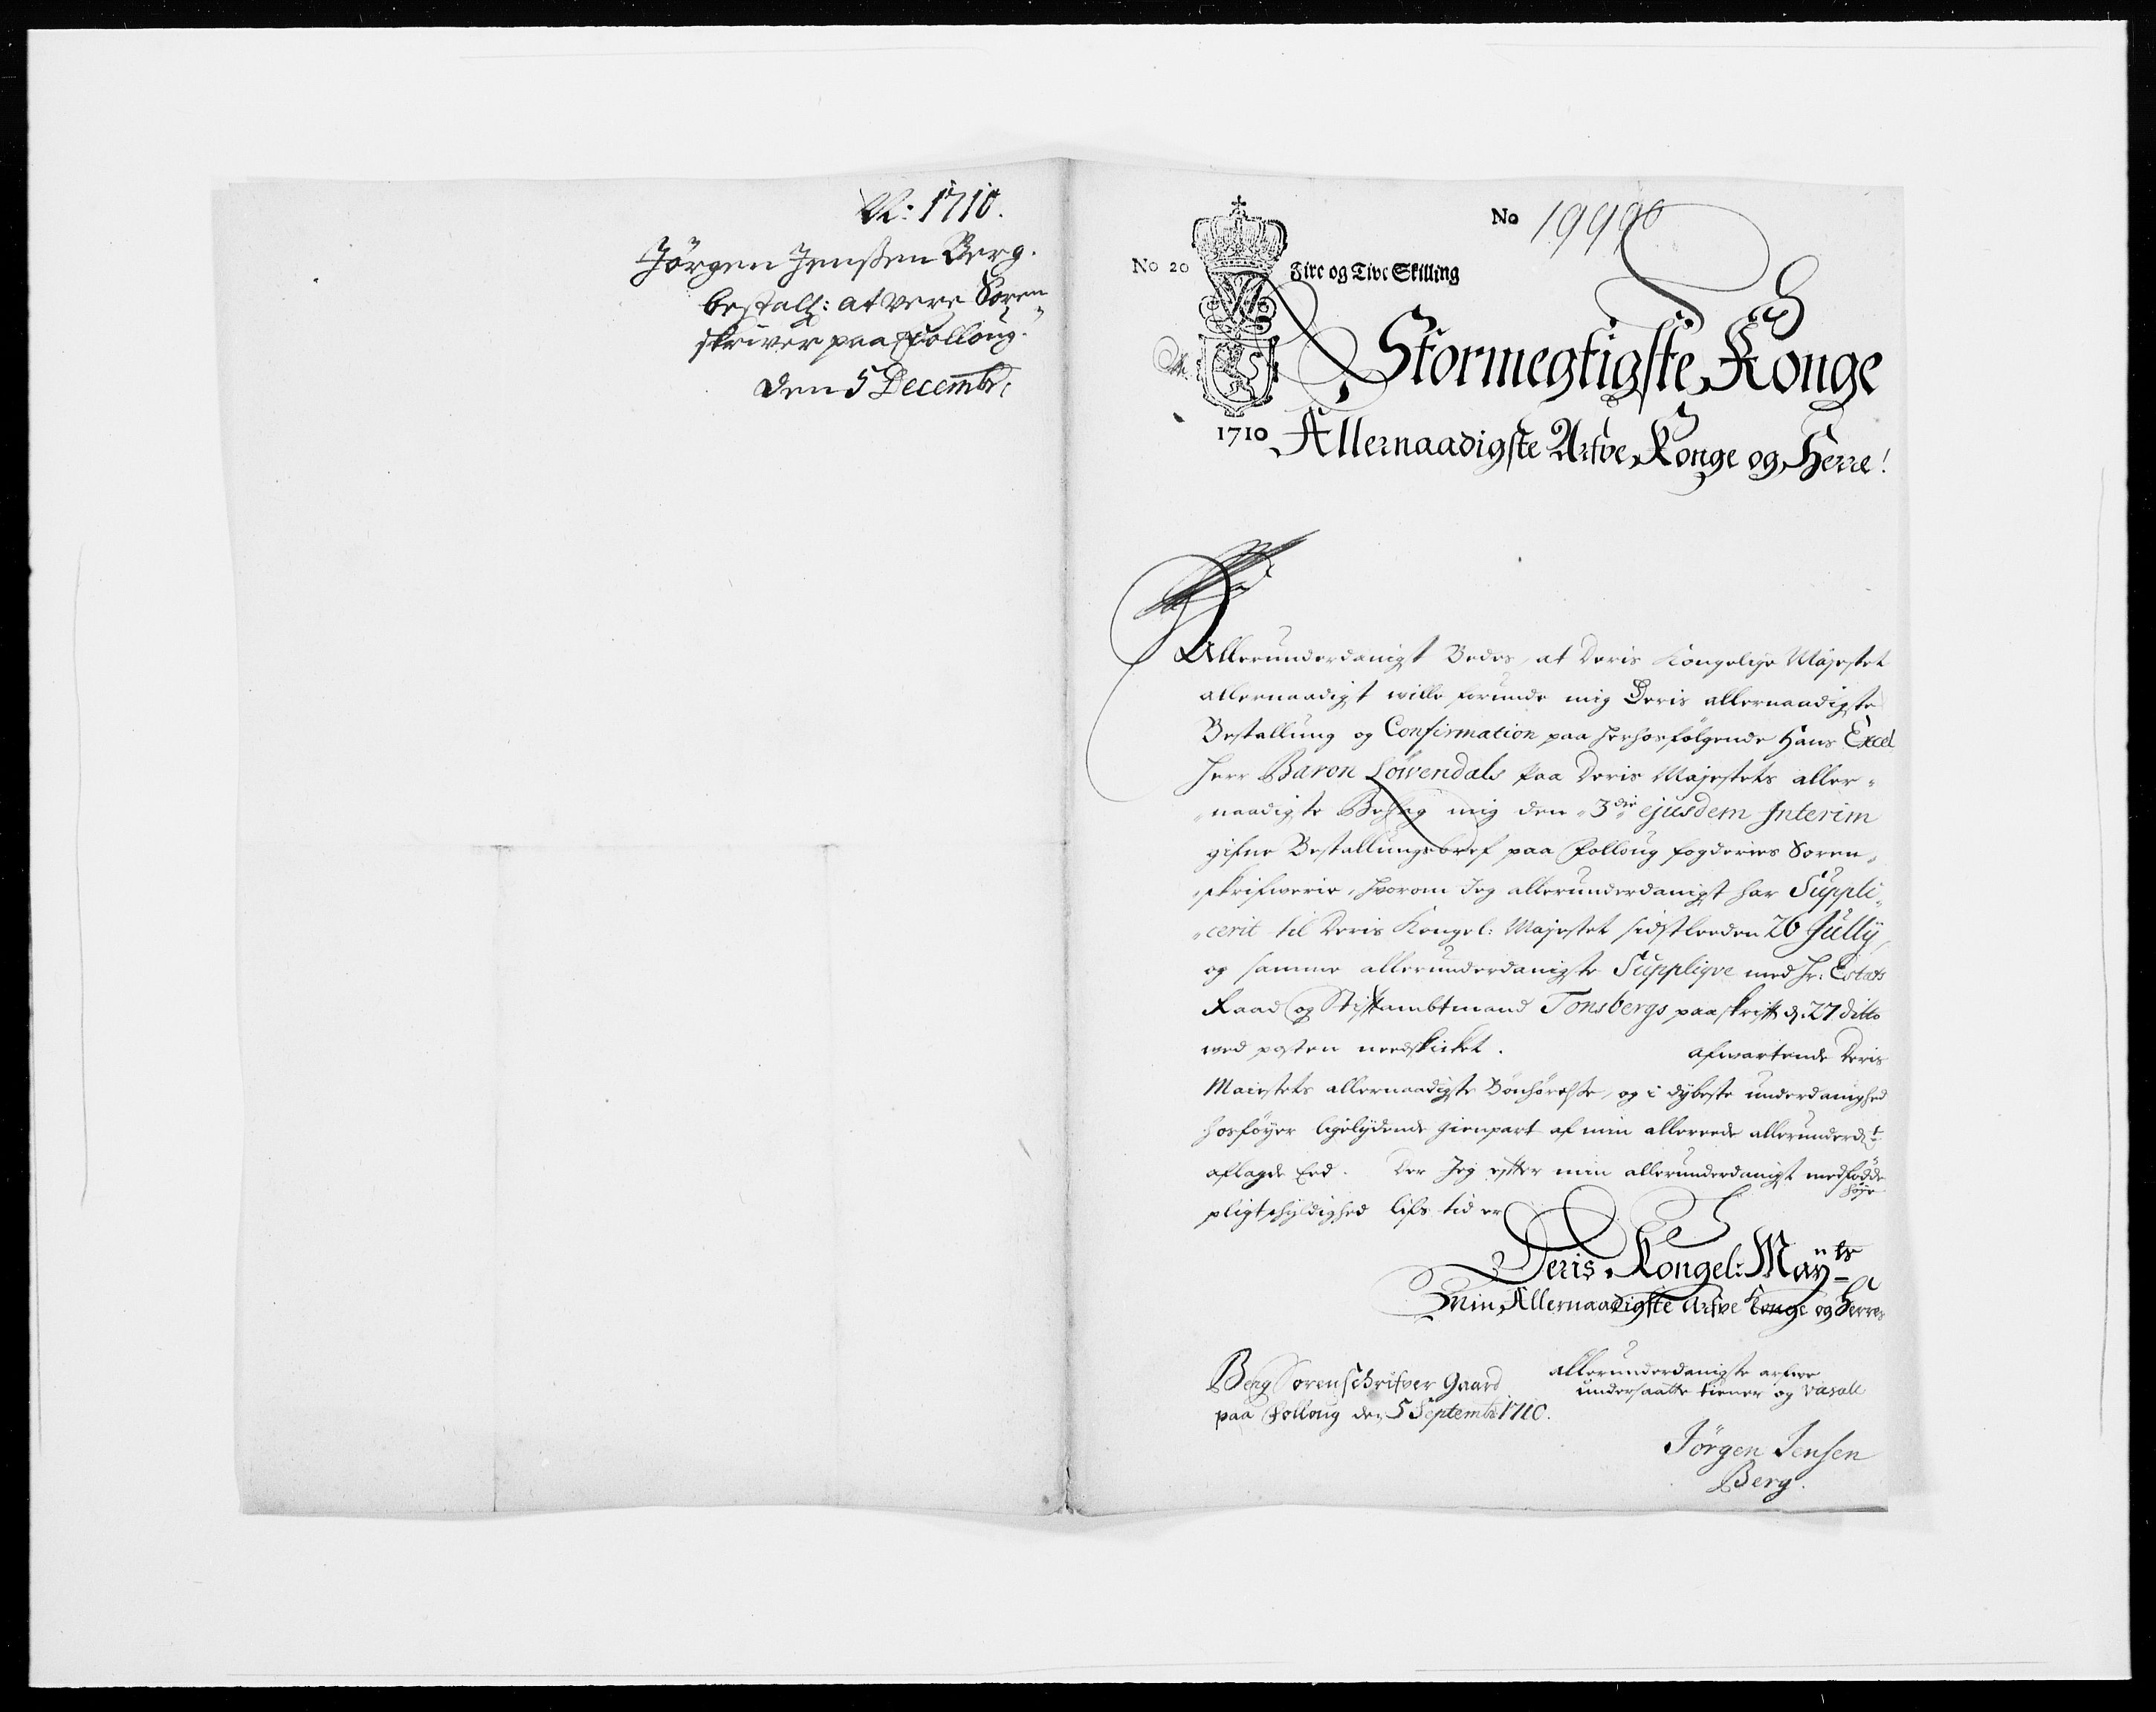 1710.
Jörgen Jenssen Berg.
bestalt: at vere Soren"
skriver paa Folloug.
den 5 Decembr:
No 19990
No 20
Fire og Tive Skilling
Stormegtigste Konge
1710
Allernaadigste Arfve Konge og Herre!
Allerunderdanigst Bedes, at Deris Kongelige Majestet
allernaadigst wille forunde mig Deris allernaadigste
Bestallung og Confirmation paa herhosfølgende Hans Excel
Herr Baron Löwendals Paa Deris Majestets aller"
"naadigste Behag mig den 3die ejusdem Interim
gifne Bestallungsbref paa Folloug fogderies Soren"
"skrifwerie, hworom Jeg allerunderdanigst har Suppli"
"cerit til Deris Kongel: Majestet sidstleeden 26 Jully,
og samme allerunderdanigste Suppliqve med Hr: Estats
Raad og Stiftambtmand Tonsbergs paaskrift d. 27 ditto
med posten needskicket. afwartende Deris
Maiestets allernaadigste Bönhörelse, og i dybeste underdanighed
hosföyer ligelydende gienpart af min allereede allerunderdt
aflagde Eed. Der Jeg efter min allerunderdanigst medfödde
höje
pligtskyldighed lifs tid er
Deris Kongel: Mayts
Min Allernaadigste Arfve Konge og Herres
Berg Sorenschrifver Gaard
paa Folloug den 5 Septembr 1710.
allerunderdanigste arfwe
undersaatte tiener og vasall
Jörgen Jensen
Berg.